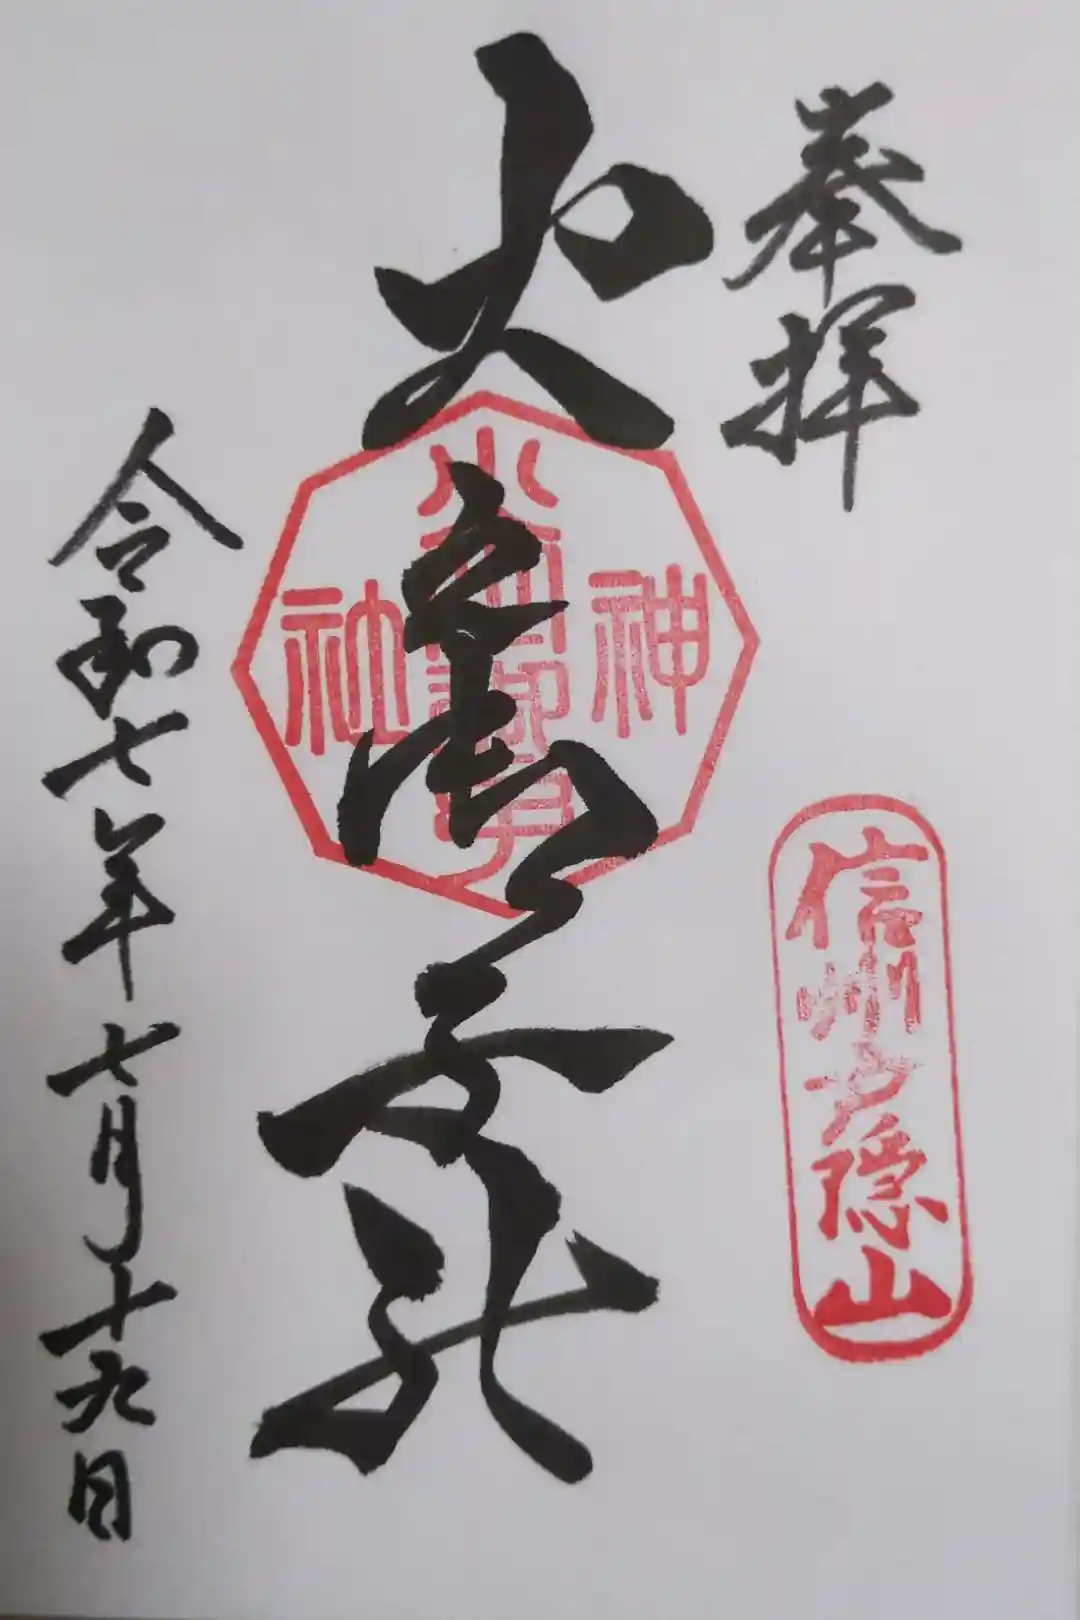 奉拝
信州戸隠山
火之御子社
神
社
令和七年七月十九日